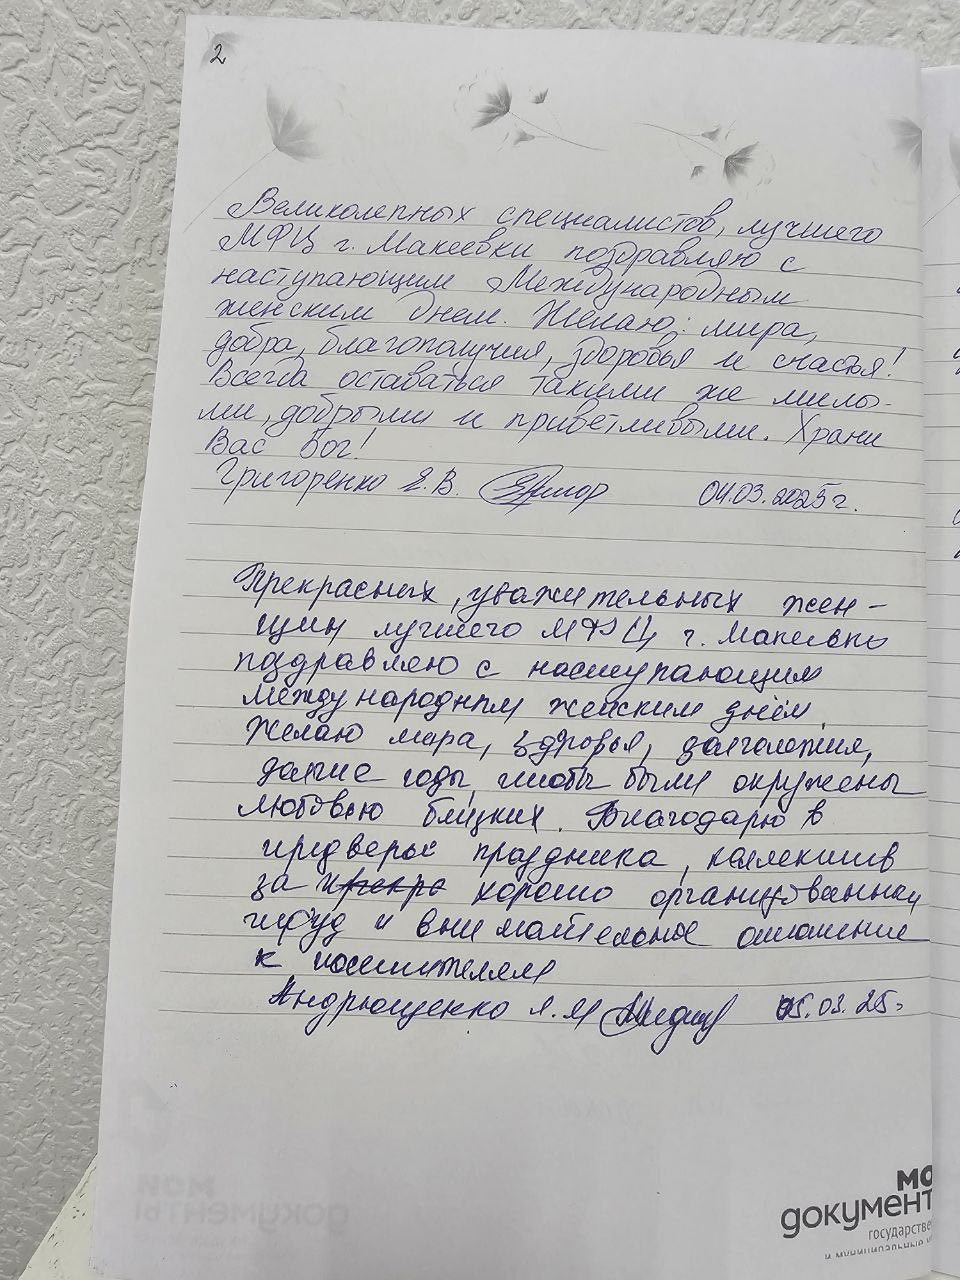 2
Великолепных специалистов, лучшего
МФЦ г. Макеевки поздравляю с
наступающим Международным
женским днем. Желаю: мира,
добра, благополучия, здоровья и счастья!
Всегда оставаться такими же милы-
ми, добрыми и приветливыми. Храни
Вас Бог!
Григоренко Е.В. 04.03.2025г.
Прекрасных, уважительных жен-
щин лучшего МФЦ г. Макеевки
поздравляю с наступающим
международным женским днём.
Желаю мира, здоровья, долголетия,
долгие годы, чтобы были окружены
любовью близких. Благодарю в
преддверье праздника, коллектив
за хорошо организованный
труд и внимательное отношение
к посетителям
Андрющенко Л.Я 05.03.25г
МО
документ
государстве
и муниципальные